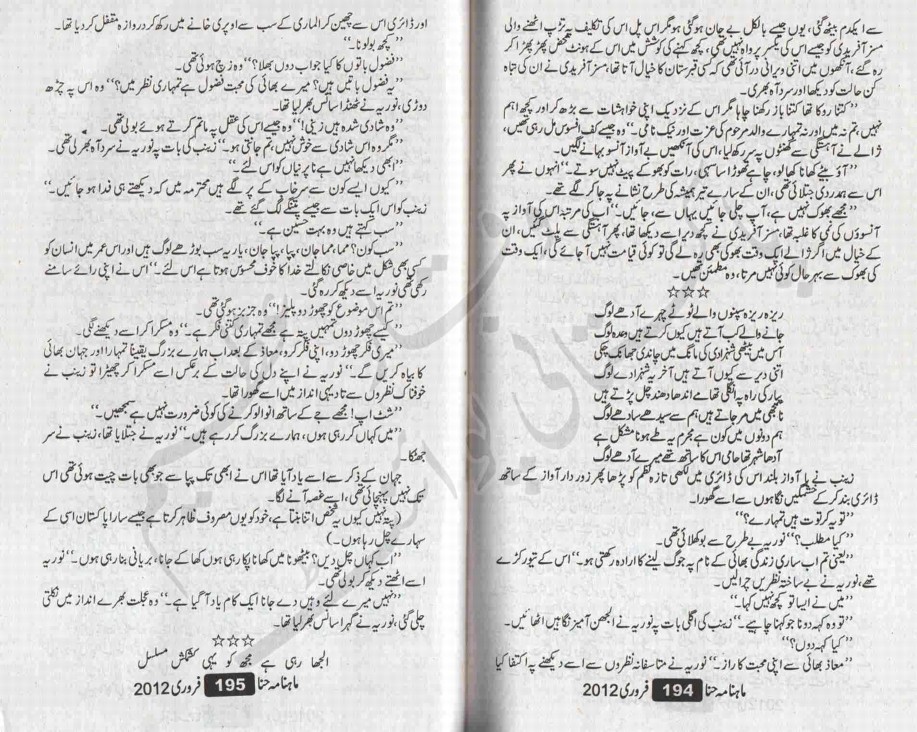 سے ایکدم بیٹھ گئی، یوں جیسے بالکل بے جان ہو گئی ہو مگر اس پل اس کی تکلیف پہ تڑپ اٹھنے والی
مسز آفریدی کو جیسے اس کی یکسر پرواہ نہیں تھی، کچھ کہنے کی کوشش میں اس کے ہونٹ محض پھڑپھڑا کر
رہ گئے، آنکھوں میں اتنی ویرانی در آئی تھی کہ کسی قبرستان کا خیال آتا تھا، مسز آفریدی نے ان کی تباہ
کن حالت کو دیکھا اور سرد آہ بھری۔
’’کتنا روکا تھا کتنا باز رکھنا چاہا مگر اس کے نزدیک اپنی خواہشات سے بڑھ کر اور کچھ اہم
نہیں، تم نہ میں اور نہ تمہارے والد مرحوم کی عزت اور نیک نامی۔‘‘ وہ جیسے کف افسوس مل رہی تھیں،
ژالے نے آہستگی سے گھٹنوں پہ سر رکھ لیا، اس کی آنکھیں بے آواز آنسو بہانے لگیں۔
’’آؤ بیٹے کھانا کھا لو، چاہے تھوڑا سا سہی، رات کو بھوکے پیٹ نہیں سوتے۔‘‘ انہوں نے پھر
اس سے ہمدردی جتلائی تھی، ان کے سارے تیر ہمیشہ کی طرح نشانے پہ جا کر لگے تھے۔
’’مجھے بھوک نہیں ہے، آپ چلی جائیں یہاں سے، جائیں۔‘‘ اب کی مرتبہ اس کی آواز پہ
آنسوؤں کی نمی کا غلبہ تھا، مسز آفریدی نے کچھ دیر اسے دیکھا تھا، پھر آہستگی سے پلٹ گئیں، ان
کے خیال میں اگر ژالے ایک وقت بھوکی بھی رہ لے گی تو کوئی قیامت نہیں آ جائے گی، ایک وقت
کی بھوک سے بہرحال کوئی نہیں مرتا، وہ مطمئن تھیں۔
☆☆☆
ریزہ ریزہ سپنوں والے ٹوٹے چہرے آدھے لوگ
جانے والے کب آتے ہیں کیوں کرتے ہیں وعدہ لوگ
آس میں بیٹھی شہزادی کی مانگ میں چاندی جھانک چکی
اتنی دیر سے کیوں آتے ہیں آخر یہ شہزادے لوگ
پیار کی راہ پہ انگلی تھامے اندھا دھند چل پڑتے ہیں
ناسمجھی میں مر جاتے ہیں ہم سے سیدھے سادھے لوگ
ہم دونوں میں کون ہے مجرم یہ طے ہونا مشکل ہے
آدھا شہر تھا حامی اس کا ساتھ تھے میرے آدھے لوگ
زینب نے با آواز بلند اس کی ڈائری میں لکھی تازہ نظم کو پڑھا پھر زور دار آواز کے ساتھ
ڈائری بند کر کے خشمگیں نگاہوں سے اسے گھورا۔
’’تو یہ کرتوت ہیں تمہارے؟‘‘
’’کیا مطلب؟‘‘ نوریہ بے طرح سے بوکھلائی تھی۔
’’یعنی تم اب ساری زندگی بھائی کے نام پہ جوگ لینے کا ارادہ رکھتی ہو۔‘‘ اس کے تیور کڑے
تھے، نوریہ نے بے ساختہ نظریں چرائیں۔
’’میں نے ایسا تو کچھ نہیں کہا۔‘‘
’’تو وہ کہہ دو نا جو کہنا چاہیے۔‘‘ زینب کی اگلی بات پہ نوریہ نے الجھن آمیز نگاہیں اٹھائیں۔
’’کیا کہہ دوں؟‘‘
’’معاذ بھائی سے اپنی محبت کا راز۔‘‘ نوریہ نے متاسفانہ نظروں سے اسے دیکھنے پہ اکتفا کیا
ماہنامہ حنا 194 فروری 2012
اور ڈائری اس سے چھین کر الماری کے سب سے اوپری خانے میں رکھ کر دروازہ مقفل کر دیا تھا۔
’’کچھ بولو نا۔‘‘
’’فضول باتوں کا کیا جواب دوں بھلا؟‘‘ وہ زچ ہوئی تھی۔
’’یہ فضول باتیں ہیں؟ میرے بھائی کی محبت فضول ہے تمہاری نظر میں؟‘‘ وہ اس پہ چڑھ
دوڑی، نوریہ نے ٹھنڈا سانس بھر لیا تھا۔
’’وہ شادی شدہ ہیں زینی!‘‘ وہ جیسے اس کی عقل پہ ماتم کرتے ہوئے بولی تھی۔
’’مگر وہ اس شادی سے خوش نہیں، تم جانتی ہو۔‘‘ زینب کی بات پہ نوریہ نے سرد آہ بھر لی تھی۔
’’ابھی دیکھا نہیں ہے نا پرنیاں کو اس لئے۔‘‘
’’کیوں ایسے کون سے سرخاب کے پر لگے ہیں محترمہ میں کہ دیکھتے ہی فدا ہو جائیں۔‘‘
زینب کو اس ایک بات سے جیسے پتنگے لگ گئے تھے۔
’’سب کہتے ہیں وہ بہت حسین ہے۔‘‘
’’سب کون؟ مما، مما جان، پپا، پپا جان، یار یہ سب بوڑھے لوگ ہیں اور اس عمر میں انسان کو
کسی بھی شکل میں خاصی نکالتے خدا کا خوف محسوس ہوتا ہے اس لئے۔‘‘ اس نے اپنی رائے سامنے
رکھی تھی نوریہ اسے دیکھ کر رہ گئی۔
’’تم اس موضوع کو چھوڑ دو پلیز!‘‘ وہ جزبز ہو گئی تھی۔
’’کیسے چھوڑ دوں تمہیں پتہ ہے مجھے تمہاری کتنی فکر ہے۔‘‘ وہ مسکرا کر اسے دیکھنے لگی۔
’’میری فکر چھوڑ دو، اپنی فکر کرو، معاذ کے بعد اب ہمارے بزرگ یقیناً تمہارا اور جہان بھائی
کا بیاہ کریں گے۔‘‘ نوریہ نے اپنے دل کی حالت کے برعکس اسے مسکرا کر چھیڑا تو زینب نے
خوفناک نظروں سے تادیبی انداز میں اسے گھورا تھا۔
’’شٹ اپ! مجھے جے کے ساتھ انوالو کرنے کی کوئی ضرورت نہیں ہے سمجھیں۔‘‘
’’میں کہاں کر رہی ہوں، ہمارے بزرگ کر رہے ہیں۔‘‘ نوریہ نے جتلایا تھا، زینب نے سر
جھٹکا۔
جہان کے ذکر سے اسے یاد آیا تھا اس نے ابھی تک پپا سے جو بھی بات چیت ہوئی تھی اس
تک نہیں پہنچائی تھی، اسے غصہ آنے لگا۔
(پتہ نہیں کیوں یہ شخص اتنا بنتا ہے، خود کو یوں مصروف ظاہر کرتا ہے جیسے سارا پاکستان اسی کے
سہارے چل رہا ہوں۔)
’’اب کہاں چل دیں؟ بیٹھو نا میں کھانا پکا رہی ہوں کھا کے جانا، بریانی بنا رہی ہوں۔‘‘ نوریہ
اسے اٹھتے دیکھ کر بولی تھی۔
’’نہیں میرے لئے وہیں دے جانا ایک کام یاد آ گیا ہے۔‘‘ وہ عجلت بھرے انداز میں نکلتی
چلی گئی، نوریہ نے گہرا سانس بھر لیا تھا۔
☆☆☆
الجھا رہی ہے مجھ کو یہی کشمکش مسلسل
ماہنامہ حنا 195 فروری 2012